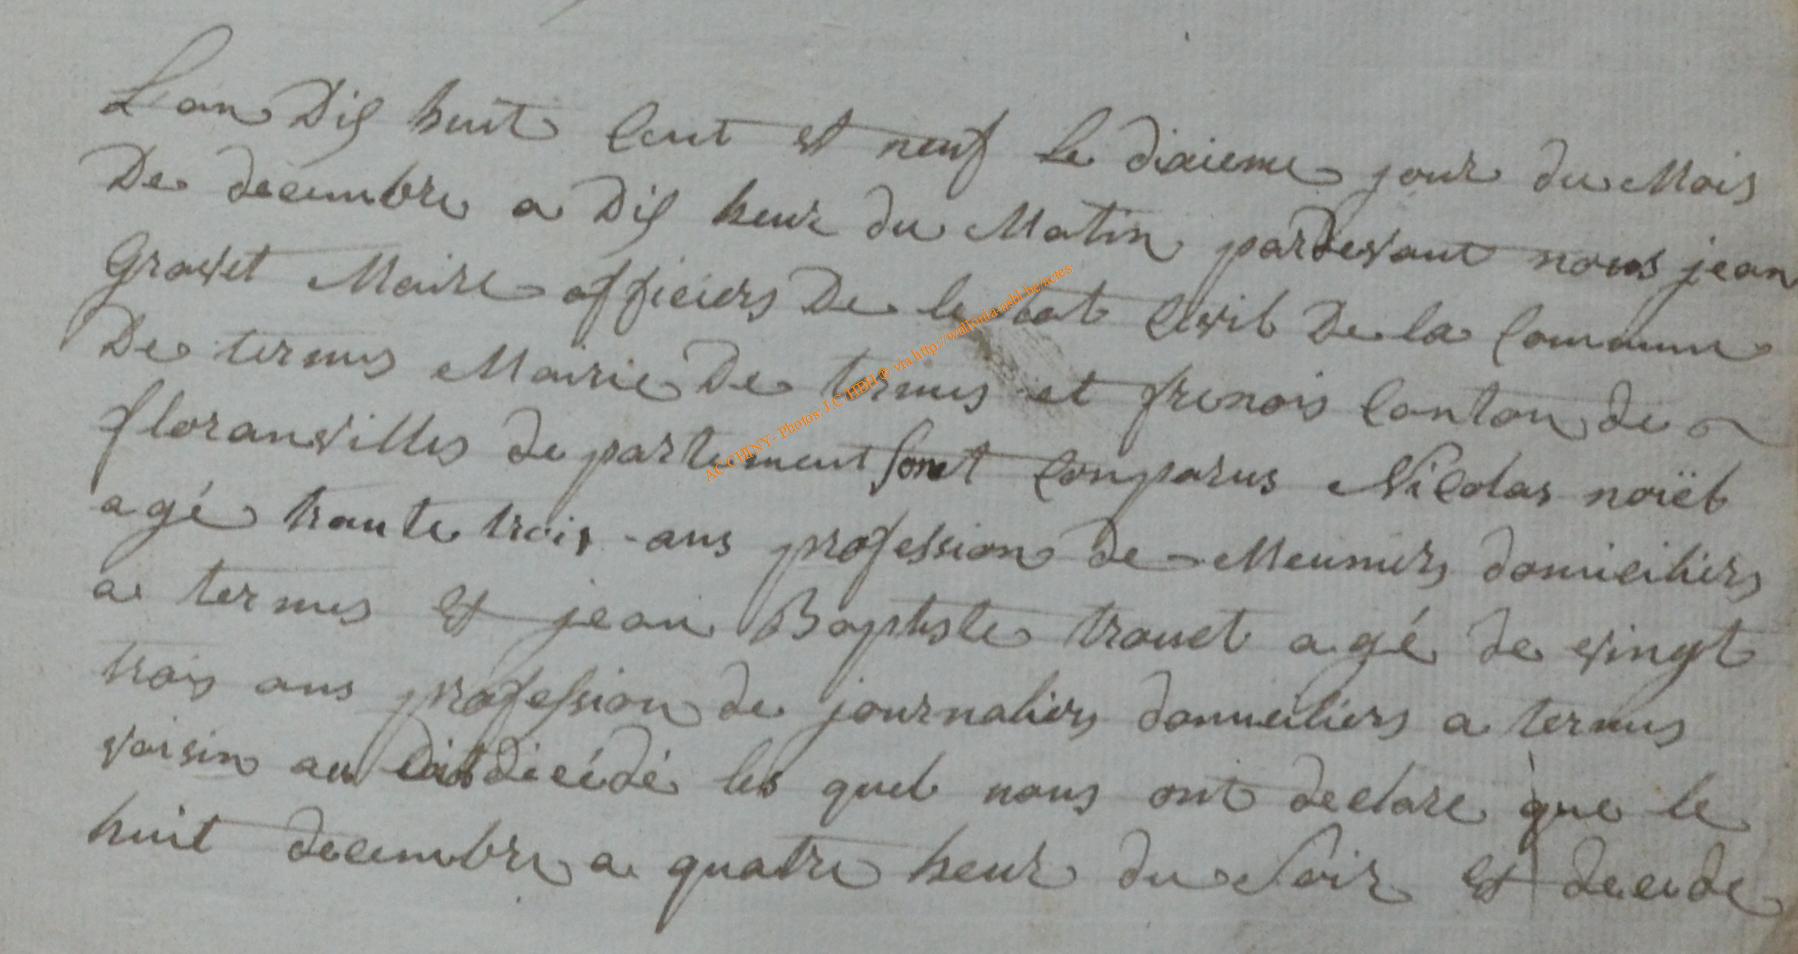 L'an Dix huit Cent et neuf Le dixieme jour du Mois
De decembre a Dix heur du Matin pardevant nous jean
Gravet Maire officiers De le tat Civil De la Commune
De termes Mairie De termes et frenois Canton de
floranvilles departement sont Comparus Nicolas noiël
agé trante trois ans profession de Meuniers domiciliers
a termes et jean Baptiste trouet agé de vingt
trois ans profession de journaliers domiciliers a termes
voisin au dit décédé les quel nous ont declare que le
huit decembre a quatre heur du Soir Et decede
ACCHINY - Photos J.C HBH @ via http://wallonia-asbl.be/actes